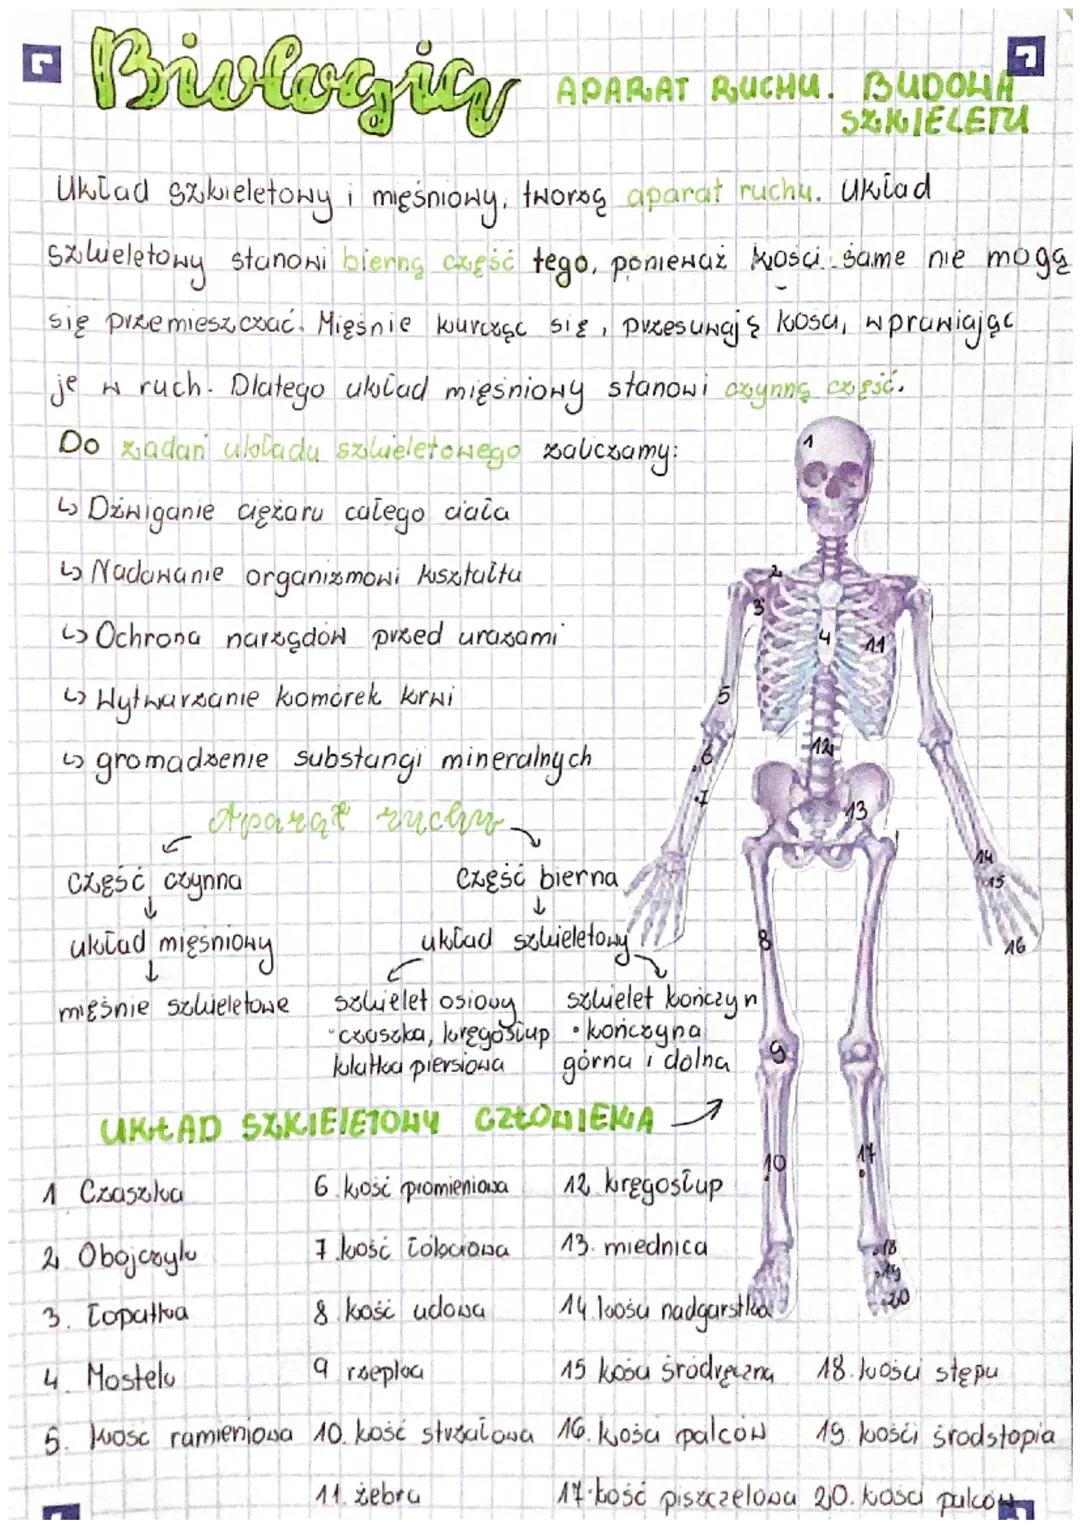 Biologia
APARAT RUCHU. BUDOWA
SZKIELETU
Układ szkieletowy i mięśniowy, tworzą aparat ruchu. Układ
szkieletowy stanowi bierną część tego, ponieważ kości same nie mogą
się przemieszczać. Mięśnie kurcząc się, przesuwają kości, wprawiając
je w ruch. Dlatego układ mięśniowy stanowi czynną część.
Do zadań układu szkieletowego zaliczamy:
↳ Dźwiganie ciężaru całego ciała
↳ Nadawanie organizmowi kształtu
↳ Ochrona narządów przed urazami
↳ Wytwarzanie komórek krwi
↳ gromadzenie substancji mineralnych
Aparat ruchu
część czynna
część bierna
układ mięśniowy
układ szkieletowy
mięśnie szkieletowe
szkielet osiowy
• czaszka, kręgosłup
klatka piersiowa
szkielet kończyn
• kończyna
górna i dolna
UKŁAD SZKIELETOWY CZŁOWIEKA
1 Czaszka
2 Obojczyk
3. Łopatka
4. Mostek
5. kość ramieniowa
6 kość promieniowa
7 kość łokciowa
8 kość udowa
9 rzepka
10. kość strzałowa
11. żebra
12 kręgosłup
13. miednica
14 kości nadgarstka
15 kości śródręczna
16. kości palców
17 kość piszczelowa
18. kości stępu
19. kości śródstopia
20. kości palców
1
2
3
4
11
5
12
6
7
13
14
15
16
8
9
10
17
18
19
20